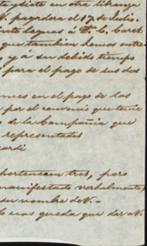 en otra libranza
V. pagadera el 17 de Julio.
á D. C. Caret
que tambien hemos entre
y á su debido tiempo
para el pago de sus dos
en el pago de las
por el convenio que tiene
de la Compañia que
representates
pertenecen tres, pero
manifestado verbalmente,
su nombre de V.
nos queda que dar á V.